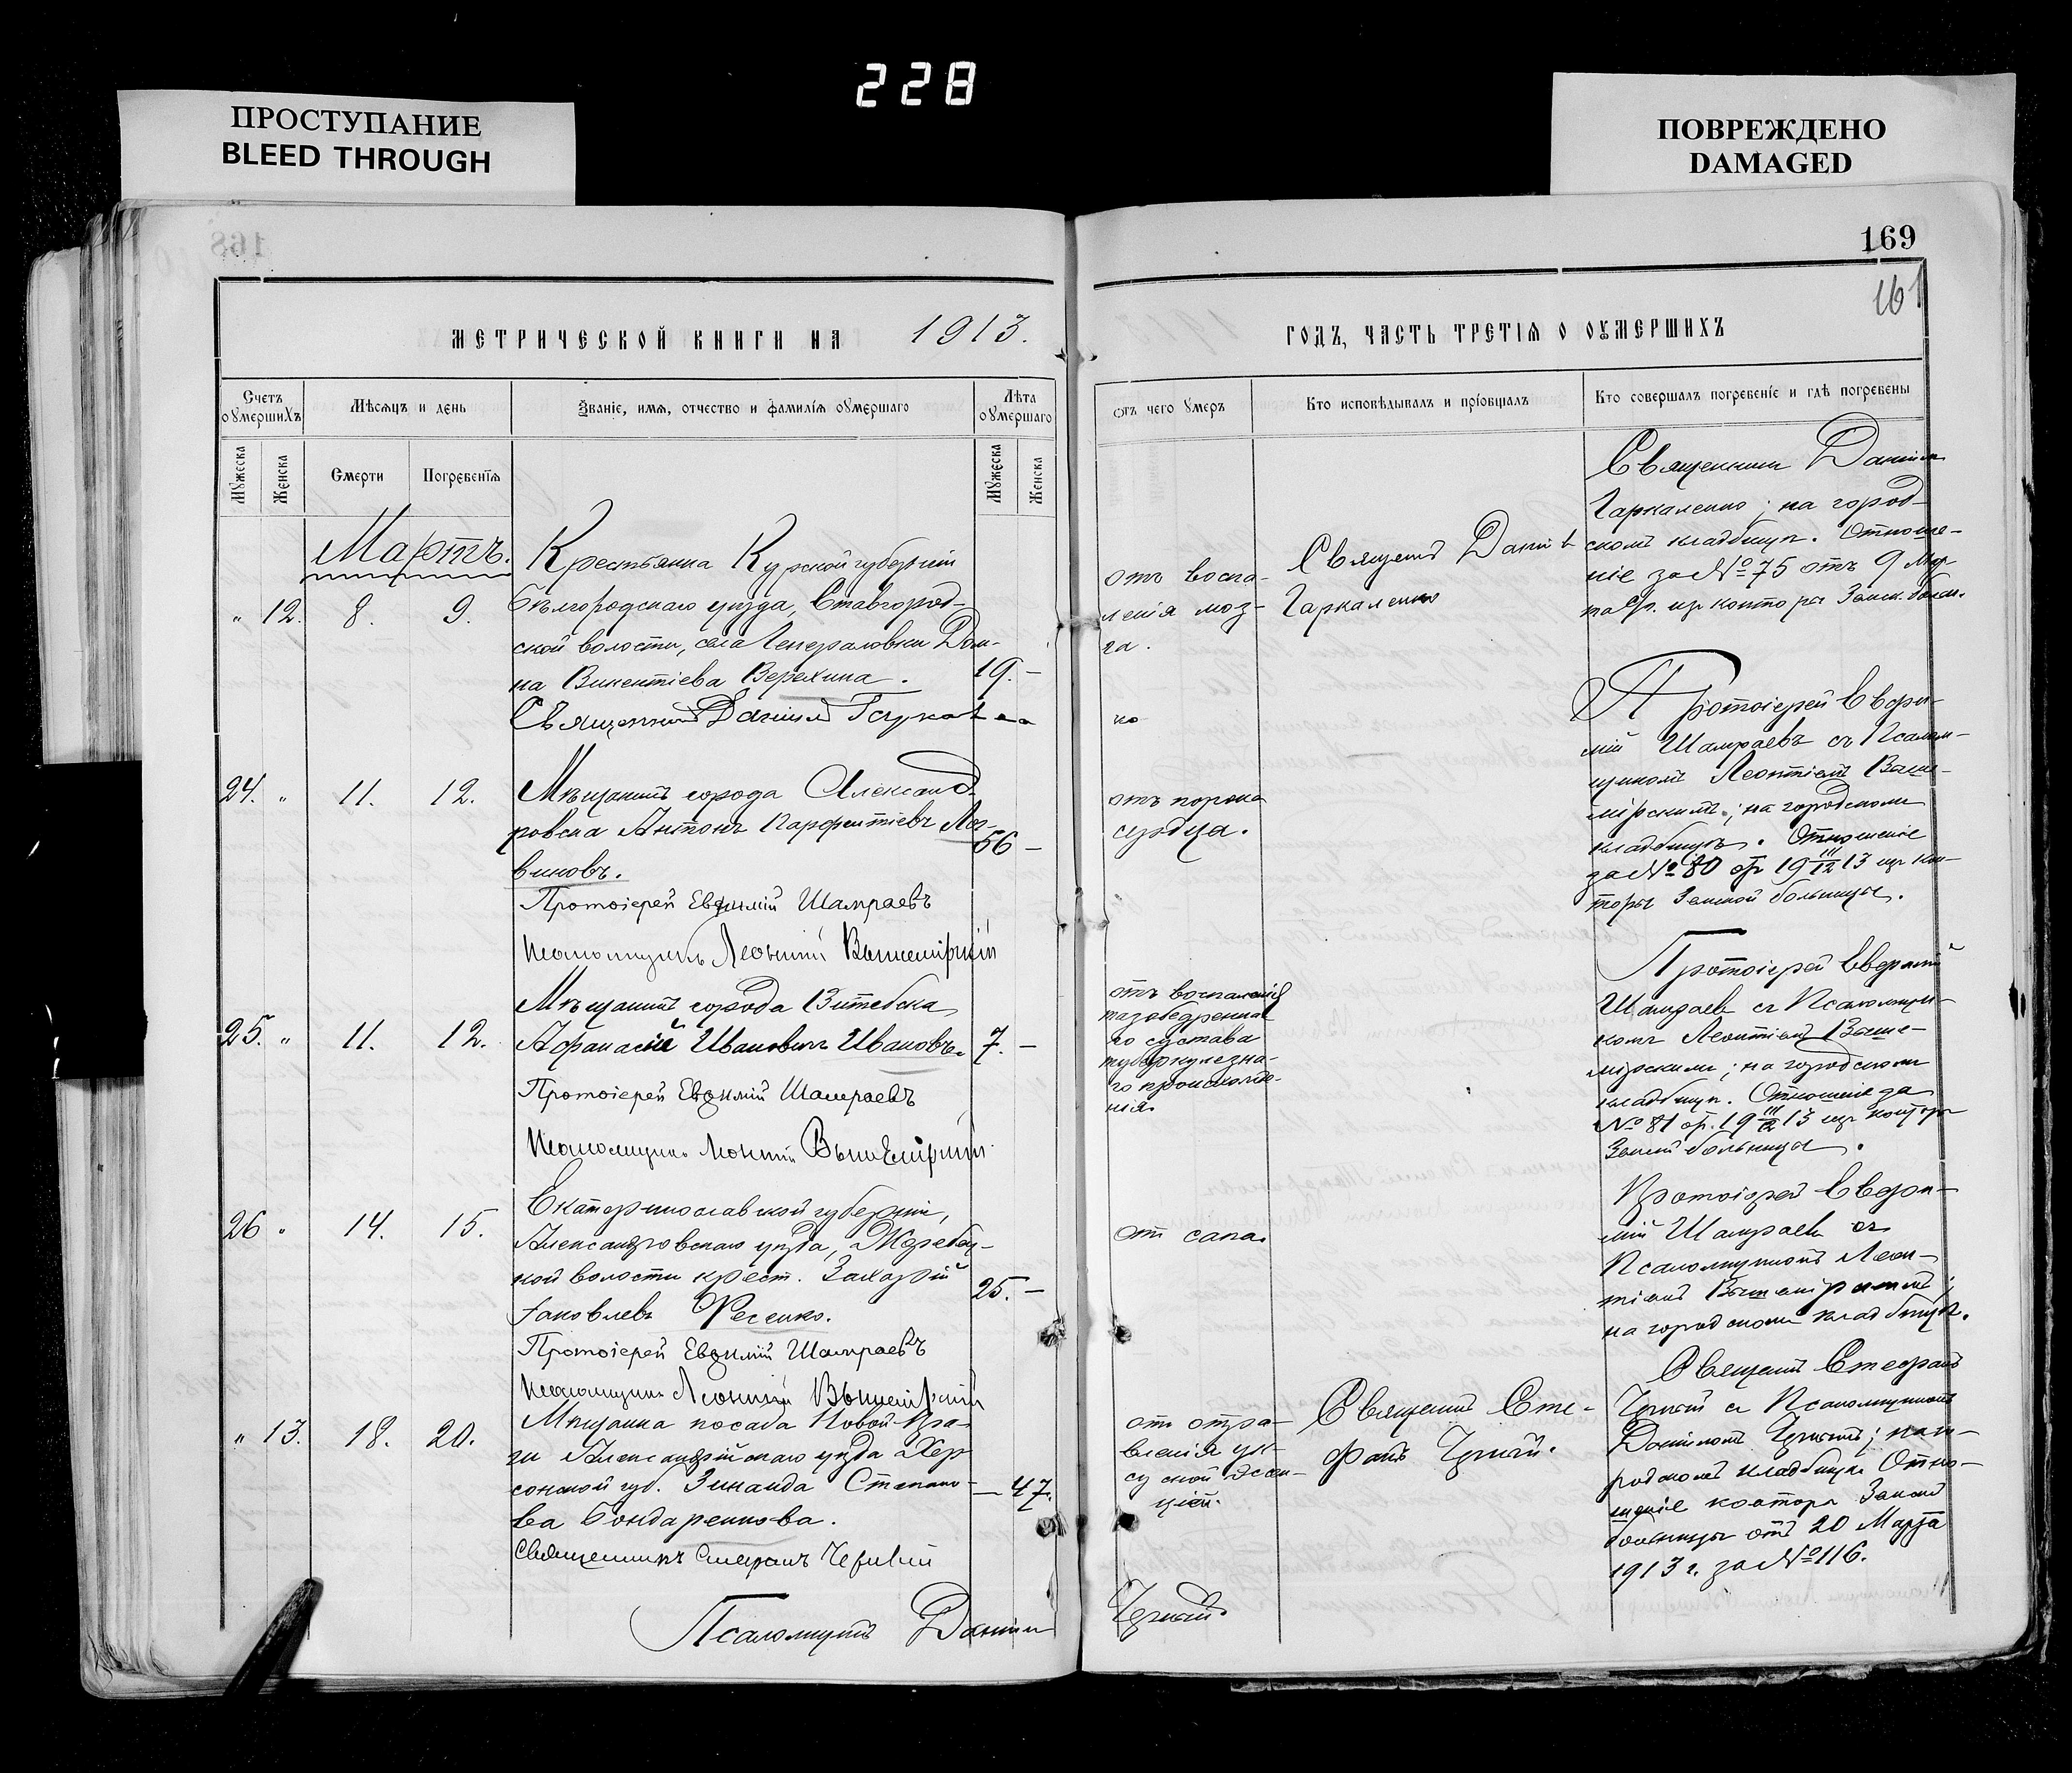 228
ПРОСТУПАНИЕ
BLEED THROUGH
ПОВРЕЖДЕНО
DAMAGED
169
161
МЕТРИЧЕСКОЙ КНИГИ НА 1913.
ГОДЪ, ЧАСТЬ ТРЕТІѦ О ОУМЕРШИХЪ
Счетъ оумершихъ
Мѣсяцъ и день
Званіе, имя, отчество и фамилія оумершаго
Лѣта оумершаго
Отъ чего умеръ
Кто исповѣдывалъ и пріобщалъ
Кто совершалъ погребеніе и гдѣ погребены
Мужеска
Женска
Смерти
Погребенія
Мужеска
Женска
Мартъ.
" 12. 8. 9.
Крестьянка Курской губерніи
Бѣлгородскаго уѣзда, Ставгород-
ской волости, села Генераловки Дом-
на Викентіева Верехина. 19. –
Священникъ Даніилъ Гаркавен
ко
отъ воспа-
ленія моз-
га.
Священ. Даніилъ
Гаркаленко
Священникъ Даніилъ
Гаркаленко; на город-
скомъ кладбищѣ. Отноше-
ніе за № 75 отъ 9 Мар-
та с/г. изъ конторы Земск. больн.
24. " 11. 12.
Мѣщанинъ города Александ-
ровска Антонъ Парфентіевъ Лог-
виновъ. 56 –
Протоіерей Евѳимій Шамраевъ
Псаломщикъ Леонтій Вышемірскій
отъ порока
сердца.
Протоіерей Евѳи-
мій Шамраевъ съ Псалом-
щикомъ Леонтіемъ Выше-
мірскимъ; на городскомъ
кладбищѣ. Отношеніе
за № 80 отъ 19 III/12 13 изъ кон-
торы Земской больницы.
25. " 11. 12.
Мѣщанинъ города Витебска
Афанасій Ивановичъ Ивановъ. 7. –
Протоіерей Евѳимій Шамраевъ
Псаломщикъ Леонтій Вышемірскій
отъ воспаленія
тазобедренна-
го сустава
туберкулезна-
го происхожде-
нія.
Протоіерей Евѳимій
Шамраевъ съ Псаломщи-
комъ Леонтіемъ Выше-
мірскимъ; на городскомъ
кладбищѣ. Отношеніе за
№ 81 отъ 19 III/12 13 изъ конторы
Земской больницы.
26 " 14. 15.
Екатеринославской губерніи,
Александровскаго уѣзда, Жеребец-
кой волости крест. Захарій
Іаковлевъ Фесенко. 25. –
Протоіерей Евѳимій Шамраевъ
Псаломщикъ Леонтій Вышемірскій
отъ сапа.
Протоіерей Евѳи-
мій Шамраевъ съ
Псаломщикомъ Леон-
тіемъ Вышемірскимъ;
на городскомъ кладбищѣ.
" 13. 18. 20.
Мѣщанка посада Новой-Пра-
ги Александрійскаго уѣзда Хер-
сонской губ. Зинаида Степано-
ва Бондаренкова. – 47.
Священникъ Стефанъ Черный
Псаломщикъ Даніилъ
Черный
отъ отра-
вленія ук-
сусной эссен-
ціей.
Священникъ Сте-
фанъ Черный.
Священникъ Стефанъ
Черный съ Псаломщикомъ
Даніиломъ Чернымъ; на го-
родскомъ кладбищѣ. Отно-
шеніе конторы Земской
больницы отъ 20 Марта
1913 г. за № 116.